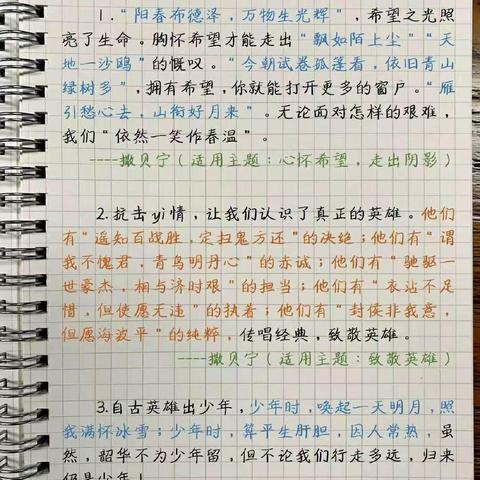 1."阳春布德泽,万物生光辉",希望之光照
亮了生命。胸怀希望才能走出"飘如陌上尘""天
地一沙鸥"的慨叹。"今朝试卷孤篷看,依旧青山
绿树多",拥有希望,你就能打开更多的窗户。"雁
引愁心去,山衔好月来"。无论面对怎样的艰难,
我们"依然一笑作春温"。
----撒贝宁(适用主题:心怀希望,走出阴影)
2.抗击yi情,让我们认识了真正的英雄。他们
有"遥知百战胜,定扫鬼方还"的决绝;他们有"谓
我不愧君,青鸟明丹心"的赤诚;他们有"驰驱一
世豪杰,相与济时艰"的担当;他们有"衣沾不足
惜,但使愿无违"的执着;他们有"封侯非我意,
但愿海波平"的纯粹,传唱经典,致敬英雄。
----撒贝宁(适用主题:致敬英雄)
3.自古英雄出少年,少年时,唤起一天明月,照
我满怀冰雪;少年时,算平生肝胆,因人常热,虽
然,韶华不为少年留,但不论我们行走多远,归来
仍是少年!